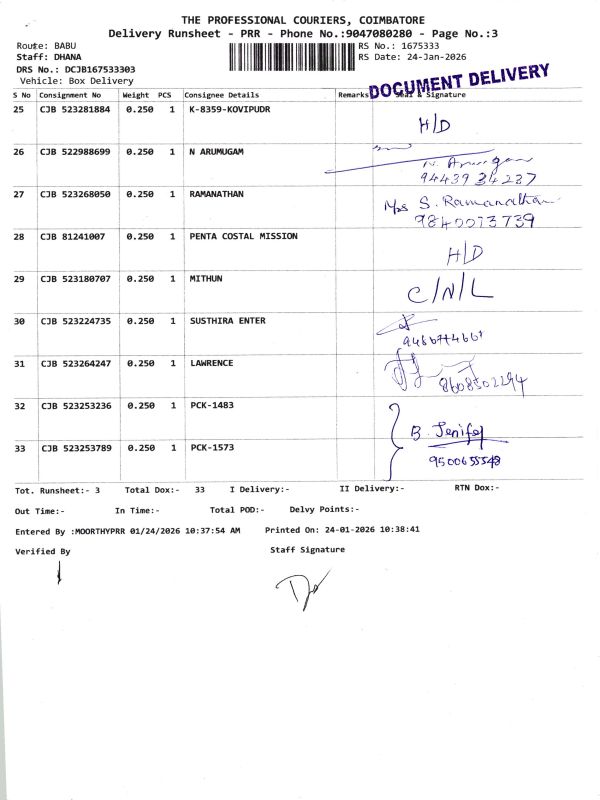 THE PROFESSIONAL COURIERS, COIMBATORE
Delivery Runsheet - PRR - Phone No.:9047080280 - Page No.:3
Route: BABU
RS No.: 1675333
Staff: DHANA
RS Date: 24-Jan-2026
DRS No.: DCJB167533303
Vehicle: Box Delivery
DOCUMENT DELIVERY
S No Consignment No Weight PCS Consignee Details Remarks Seal & Signature
25 CJB 523281884 0.250 1 K-8359-KOVIPUDR
H/D
26 CJB 522988699 0.250 1 N ARUMUGAM
9443934237
27 CJB 523268050 0.250 1 RAMANATHAN
S. Ramanathan
9840073739
28 CJB 81241007 0.250 1 PENTA COSTAL MISSION
H/D
29 CJB 523180707 0.250 1 MITHUN
C/N/L
30 CJB 523224735 0.250 1 SUSTHIRA ENTER
31 CJB 523264247 0.250 1 LAWRENCE
8608502294
32 CJB 523253236 0.250 1 PCK-1483
B. Jenifer
33 CJB 523253789 0.250 1 PCK-1573
9500655548
Tot. Runsheet:- 3 Total Dox:- 33 I Delivery:- II Delivery:- RTN Dox:-
Out Time:- In Time:- Total POD:- Delvy Points:-
Entered By :MOORTHYPRR 01/24/2026 10:37:54 AM Printed On: 24-01-2026 10:38:41
Verified By Staff Signature